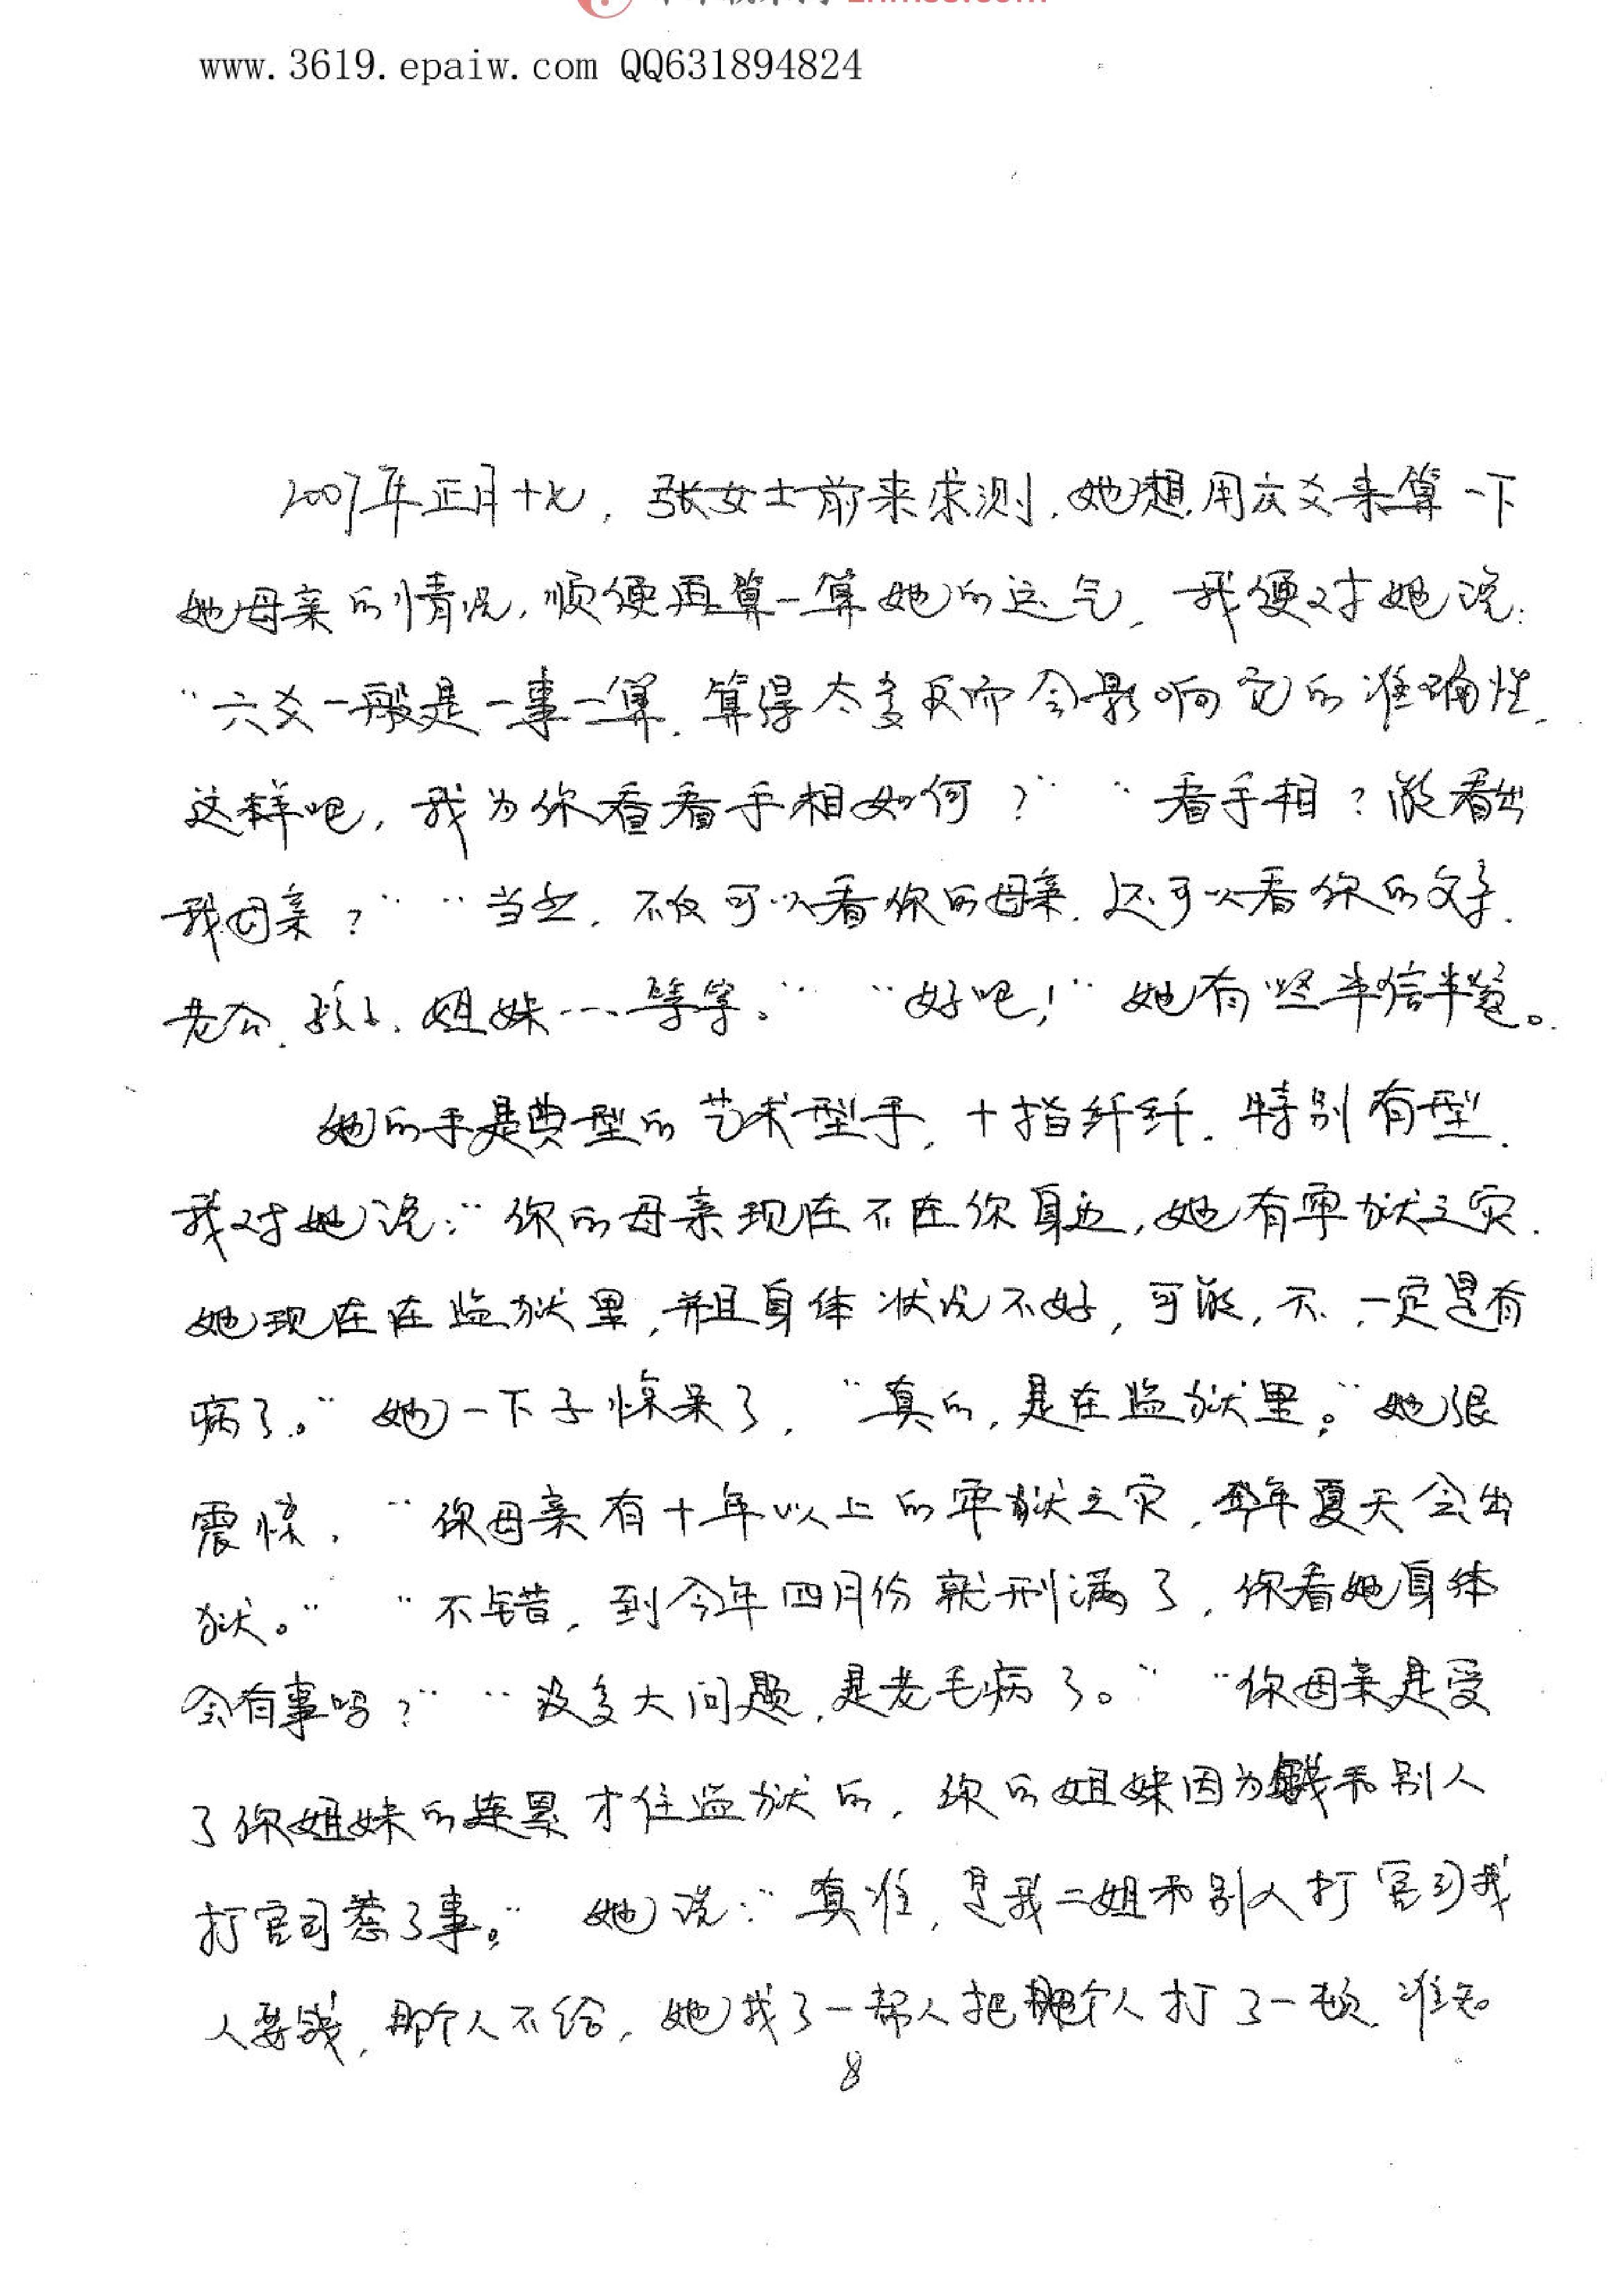 www.3619.epaiw.com QQ631894824
2007年正月十七，张女士前来求测，她想用六爻来算一下
她母亲的情况，顺便再算一算她的运气，我便对她说：
“六爻一般是一事一算，算得太多反而会影响它的准确性，
这样吧，我为你看看手相如何？”“看手相？能看出
我母亲？”“当然，不仅可以看你的母亲，还可以看你的父亲，
老公、孩子、姐妹……等等。”“好吧！”她有些半信半疑。
她的手是典型的艺术型手，十指纤纤，特别有型，
我对她说：“你的母亲现在不在你身边，她有牢狱之灾，
她现在在监狱里，并且身体状况不好，可能，不，一定是有
病了。”她一下子惊呆了，“真的，是在监狱里。”她很
震惊，“你母亲有十年以上的牢狱之灾，年夏天会出
狱。”“不错，到今年四月份就刑满了，你看她身体
会有事吗？”“没多大问题，是老毛病了。”“你母亲是受
了你姐妹的连累才住监狱的，你的姐妹因为钱和别人
打官司惹了事。”她说：“真准，是我二姐和别人打官司找
人要钱，那个人不给，她找了一帮人把那个人打了一顿，谁知
8